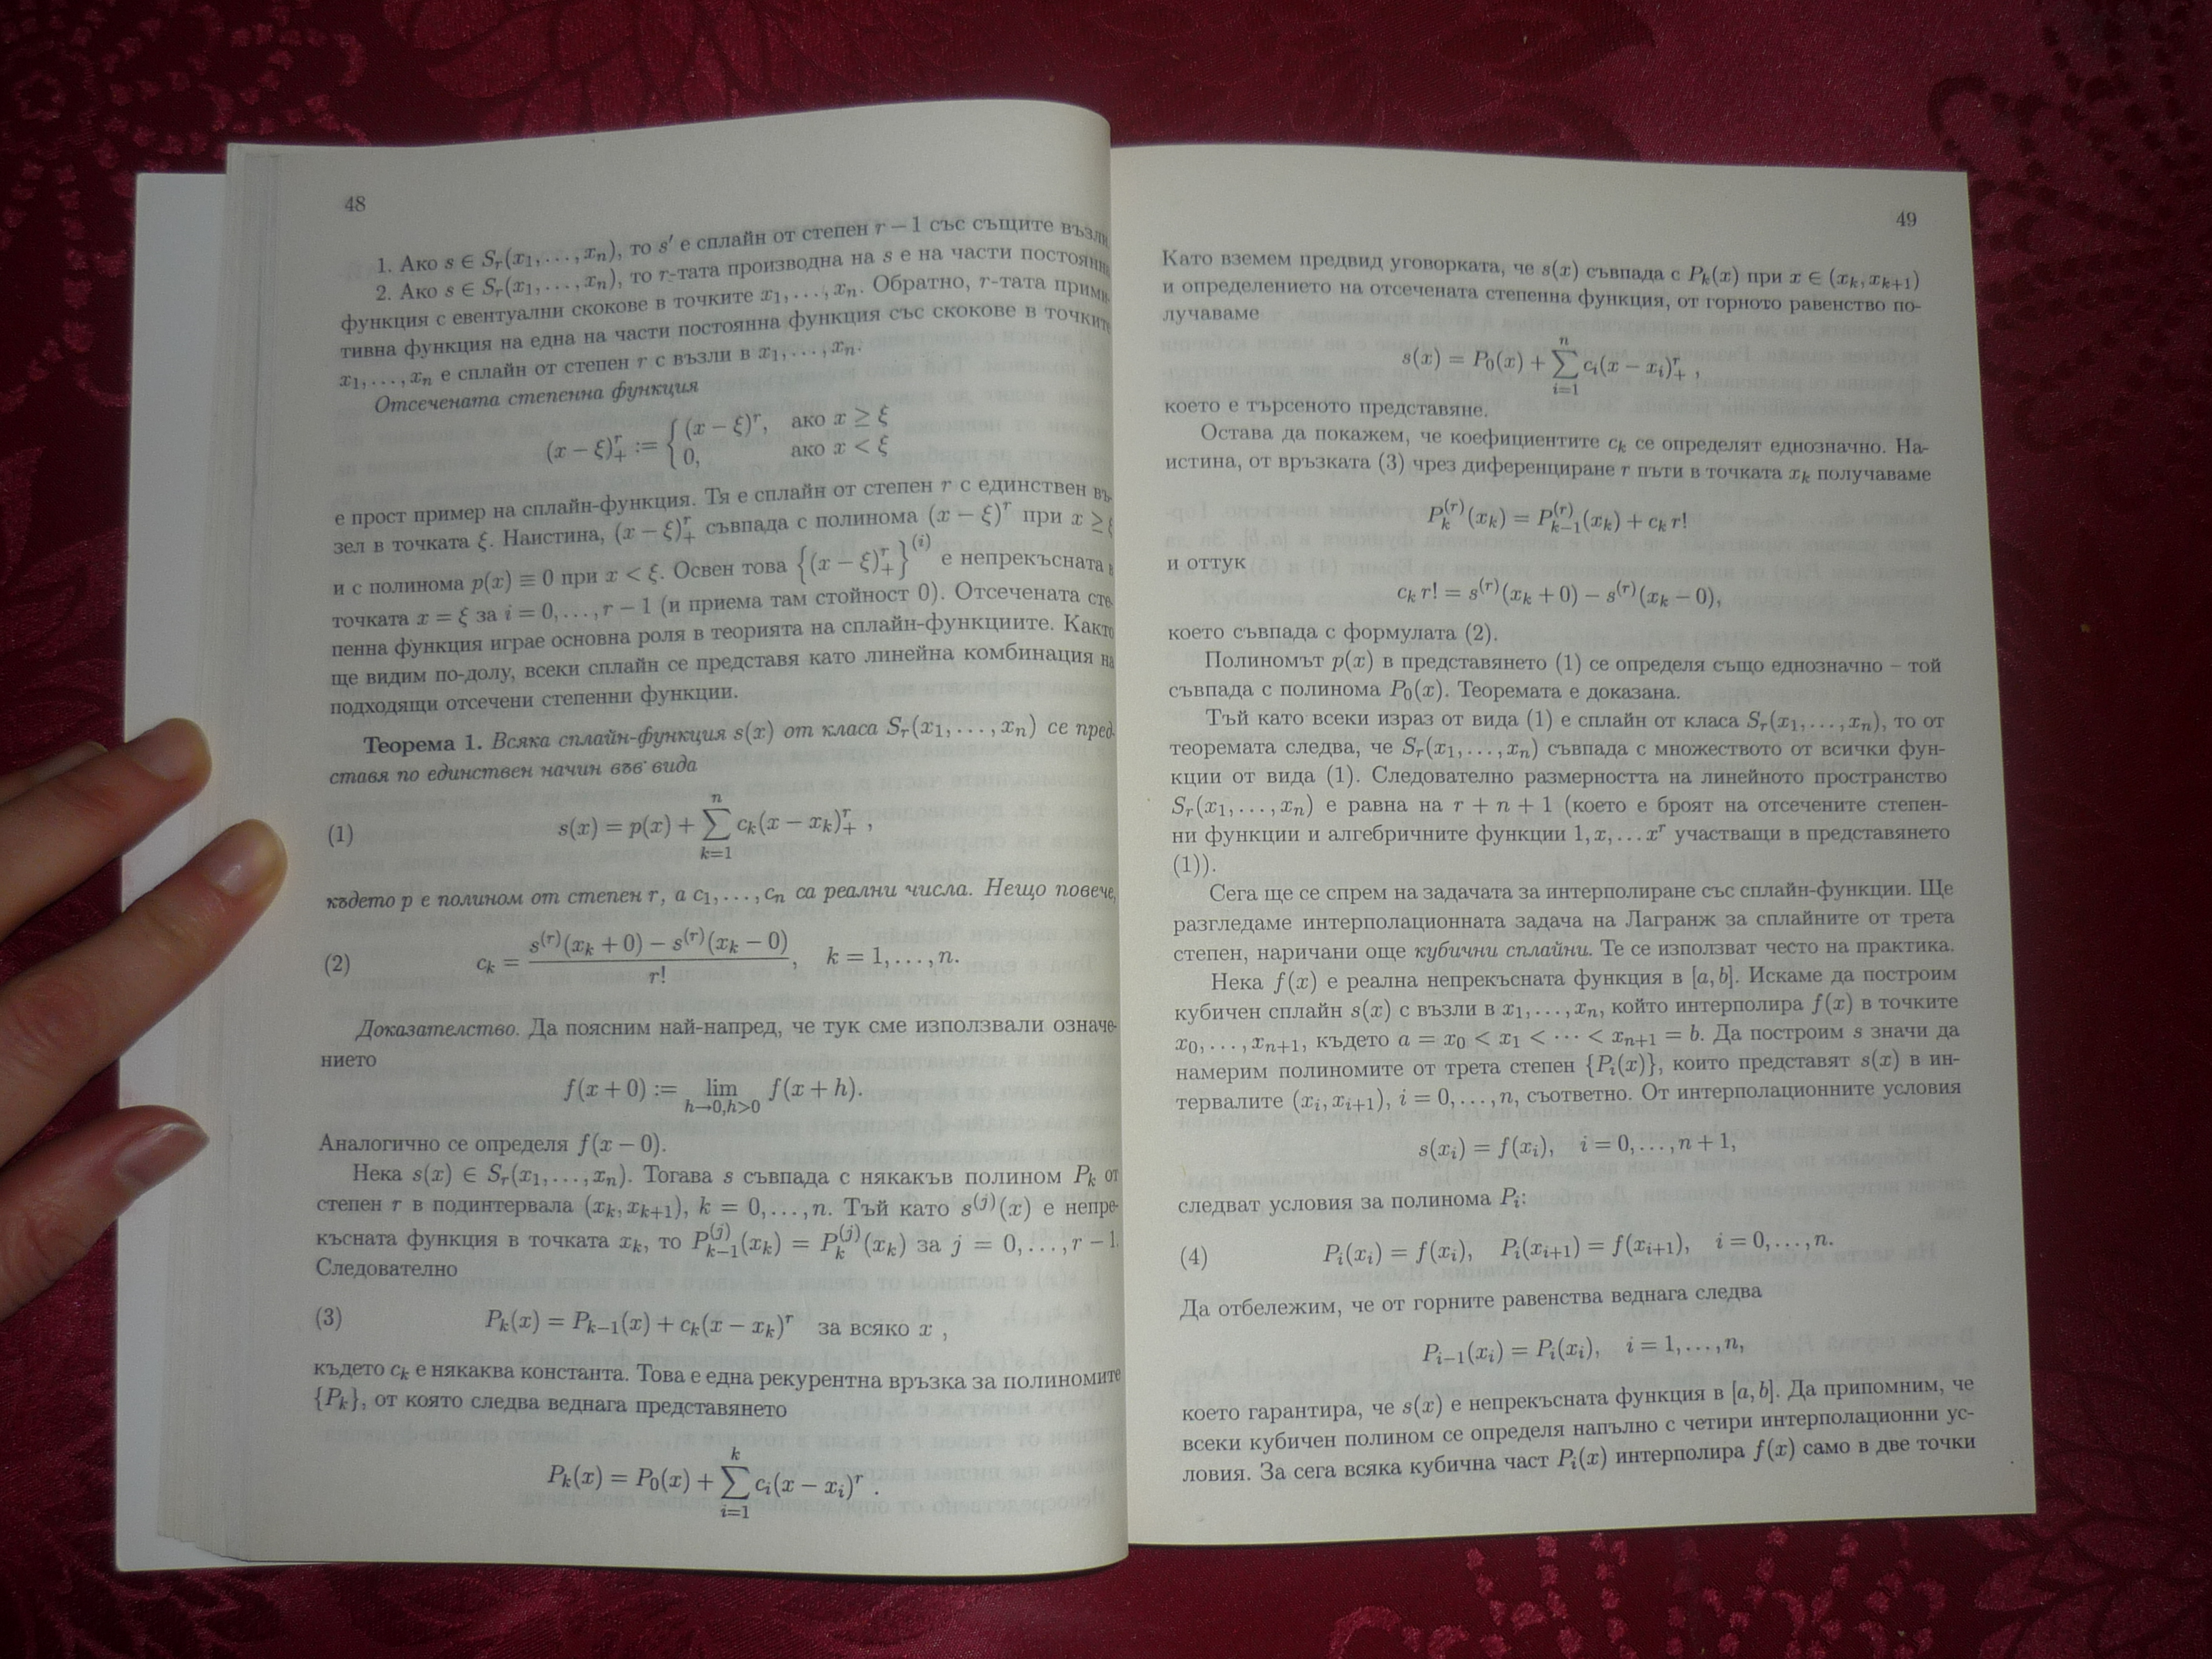 48
1. Ако s ∈ S_r(x_1, . . . , x_n), то s′ е сплайн от степен r − 1 със същите
2. Ако s ∈ S_r(x_1, . . . , x_n), то r-тата производна на s е на части
функция с евентуални скокове в точките x_1, . . . , x_n. Обратно, r-тата
тивна функция на една на части постоянна функция със скокове в точките
x_1, . . . , x_n е сплайн от степен r с възли в x_1, . . . , x_n.
Отсечената степенна функция
(x − ξ)_+^r := { (x − ξ)^r, ако x ≥ ξ
0, ако x < ξ
е прост пример на сплайн-функция. Тя е сплайн от степен r с единствен въ-
зел в точката ξ. Наистина, (x − ξ)_+^r съвпада с полинома (x − ξ)^r при x ≥ ξ
и с полинома p(x) ≡ 0 при x < ξ. Освен това {(x − ξ)_+^r}^(i) е непрекъсната в
точката x = ξ за i = 0, . . . , r − 1 (и приема там стойност 0). Отсечената сте-
пенна функция играе основна роля в теорията на сплайн-функциите. Както
ще видим по-долу, всеки сплайн се представя като линейна комбинация на
подходящи отсечени степенни функции.
Теорема 1. Всяка сплайн-функция s(x) от класа S_r(x_1, . . . , x_n) се пред-
ставя по единствен начин във вида
(1) s(x) = p(x) + ∑_{k=1}^{n} c_k(x − x_k)_+^r ,
където p е полином от степен r, а c_1, . . . , c_n са реални числа. Нещо повече,
(2) c_k = (s^(r)(x_k + 0) − s^(r)(x_k − 0)) / r! , k = 1, . . . , n.
Доказателство. Да поясним най-напред, че тук сме използвали означе-
нието
f(x + 0) := lim_{h→0,h>0} f(x + h).
Аналогично се определя f(x − 0).
Нека s(x) ∈ S_r(x_1, . . . , x_n). Тогава s съвпада с някакъв полином P_k от
степен r в подинтервала (x_k, x_{k+1}), k = 0, . . . , n. Тъй като s^(j)(x) е непре-
късната функция в точката x_k, то P_{k−1}^(j)(x_k) = P_k^(j)(x_k) за j = 0, . . . , r − 1.
Следователно
(3) P_k(x) = P_{k−1}(x) + c_k(x − x_k)^r за всяко x ,
където c_k е някаква константа. Това е една рекурентна връзка за полиномите
{P_k}, от която следва веднага представянето
P_k(x) = P_0(x) + ∑_{i=1}^{k} c_i(x − x_i)^r .
49
Като вземем предвид уговорката, че s(x) съвпада с P_k(x) при x ∈ (x_k, x_{k+1})
и определението на отсечената степенна функция, от горното равенство по-
лучаваме
s(x) = P_0(x) + ∑_{i=1}^{n} c_i(x − x_i)_+^r ,
което е търсеното представяне.
Остава да покажем, че коефициентите c_k се определят еднозначно. На-
истина, от връзката (3) чрез диференциране r пъти в точката x_k получаваме
P_k^(r)(x_k) = P_{k−1}^(r)(x_k) + c_k r!
и оттук
c_k r! = s^(r)(x_k + 0) − s^(r)(x_k − 0),
което съвпада с формулата (2).
Полиномът p(x) в представянето (1) се определя също еднозначно – той
съвпада с полинома P_0(x). Теоремата е доказана.
Тъй като всеки израз от вида (1) е сплайн от класа S_r(x_1, . . . , x_n), то от
теоремата следва, че S_r(x_1, . . . , x_n) съвпада с множеството от всички фун-
кции от вида (1). Следователно размерността на линейното пространство
S_r(x_1, . . . , x_n) е равна на r + n + 1 (което е броят на отсечените степен-
ни функции и алгебричните функции 1, x, . . . x^r участващи в представянето
(1)).
Сега ще се спрем на задачата за интерполиране със сплайн-функции. Ще
разгледаме интерполационната задача на Лагранж за сплайните от трета
степен, наричани още кубични сплайни. Те се използват често на практика.
Нека f(x) е реална непрекъсната функция в [a, b]. Искаме да построим
кубичен сплайн s(x) с възли в x_1, . . . , x_n, който интерполира f(x) в точките
x_0, . . . , x_{n+1}, където a = x_0 < x_1 < · · · < x_{n+1} = b. Да построим s значи да
намерим полиномите от трета степен {P_i(x)}, които представят s(x) в ин-
тервалите (x_i, x_{i+1}), i = 0, . . . , n, съответно. От интерполационните условия
s(x_i) = f(x_i), i = 0, . . . , n + 1,
следват условия за полинома P_i:
(4) P_i(x_i) = f(x_i), P_i(x_{i+1}) = f(x_{i+1}), i = 0, . . . , n.
Да отбележим, че от горните равенства веднага следва
P_{i−1}(x_i) = P_i(x_i), i = 1, . . . , n,
което гарантира, че s(x) е непрекъсната функция в [a, b]. Да припомним, че
всеки кубичен полином се определя напълно с четири интерполационни ус-
ловия. За сега всяка кубична част P_i(x) интерполира f(x) само в две точки